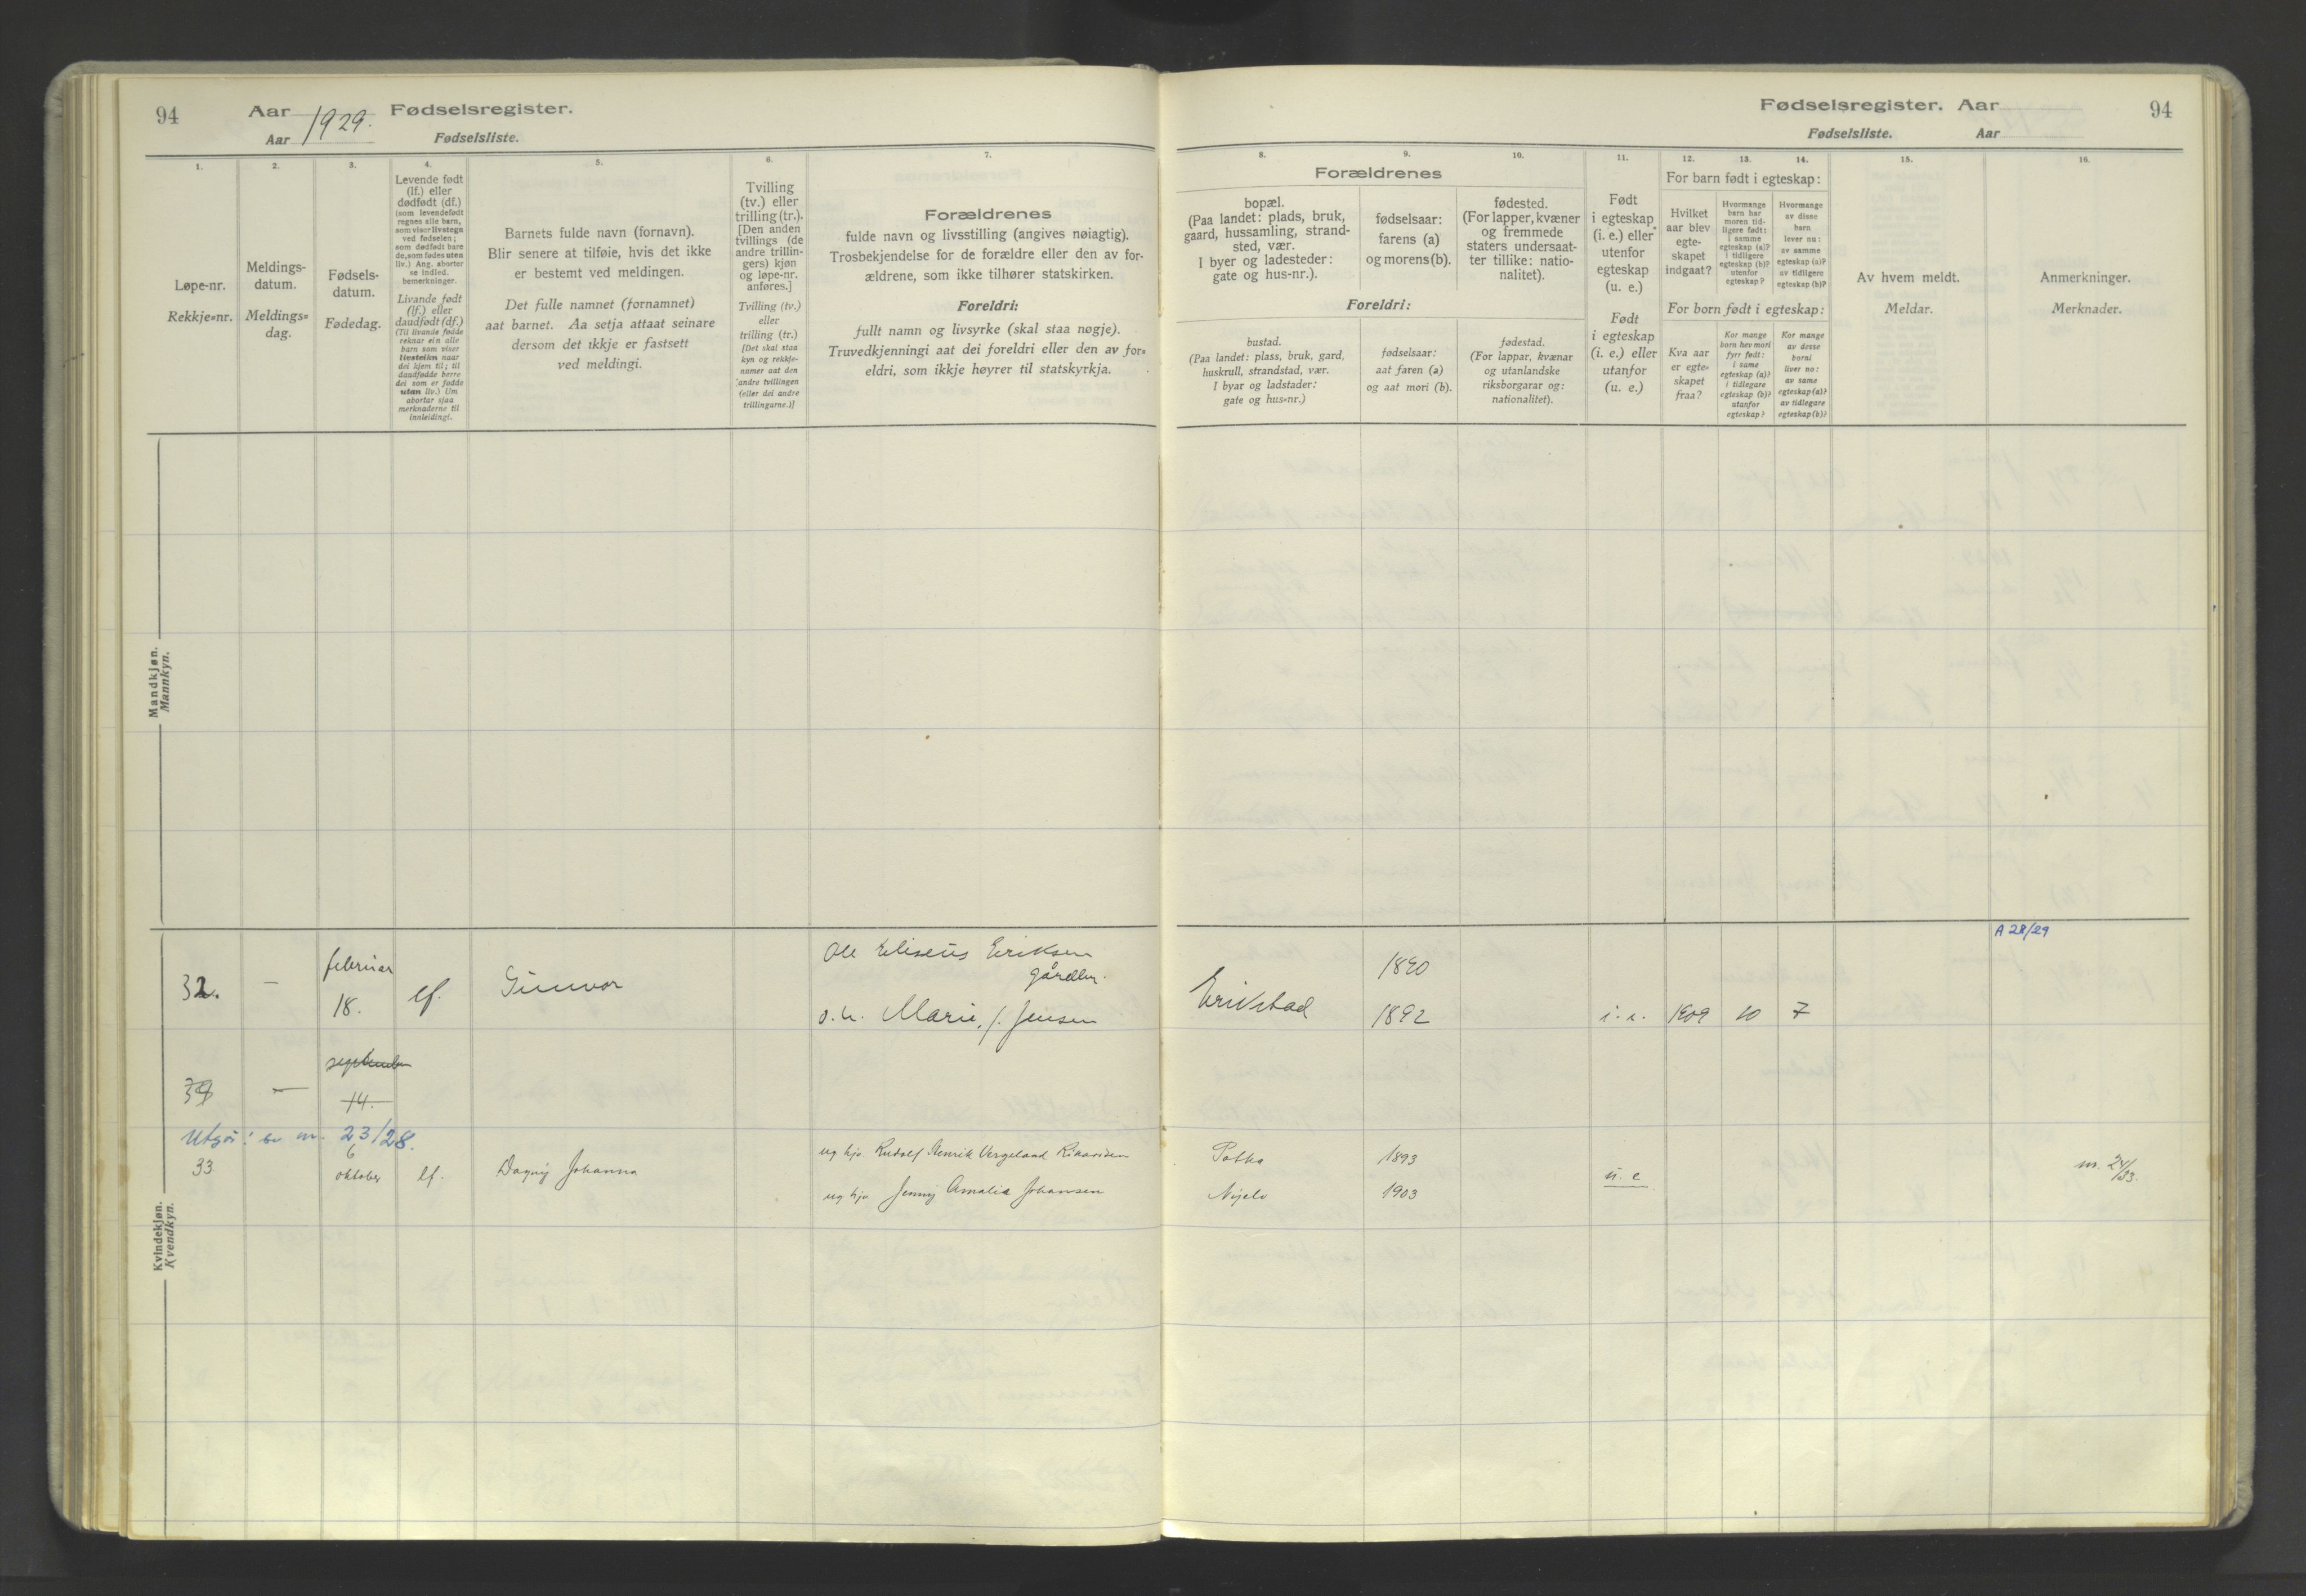 94
Aar 1929. Fødselsregister.
Aar Fødselsliste.
1.
2.
3.
4.
5.
6.
7.
Løpe-nr.
Rekkje-nr.
Meldings-
datum.
Meldings-
dag.
Fødsels-
datum.
Fødedag.
Levende født
(lf.) eller
dødfødt (df.)
(som levendefødt
regnes alle barn,
som viser livstegn
ved fødselen;
som dødfødt bare
de, som fødes uten
liv.) Ang. aborter
se indled.
bemerkninger.
Livande født
(lf.) eller
daudfødt (df.)
(Til livande fødde
reknar ein alle
barn som viser
livsteikn naar
dei kjem til; til
daudfødde berre
dei som er fødde
utan liv.) Um
abortar sjaa
merknaderne til
innleidingi.
Barnets fulde navn (fornavn).
Blir senere at tilføie, hvis det ikke
er bestemt ved meldingen.
Det fulle namnet (fornamnet)
aat barnet. Aa setja attaat seinare
dersom det ikkje er fastsett
ved meldingi.
Tvilling
(tv.) eller
trilling (tr.).
[Den anden
tvillings (de
andre trillin-
gers) kjøn
og løpe-nr.
anføres.]
Tvilling (tv.)
eller
trilling (tr.)
[Det skal staa
kyn og rekkje-
numer aat den
andre tvillingen
(eller dei andre
trillingarne.)]
Forældrenes
fulde navn og livsstilling (angives nøiagtig).
Trosbekjendelse for de forældre eller den av for-
ældrene, som ikke tilhører statskirken.
Foreldri:
fullt namn og livsyrke (skal staa nøgje).
Truvedkjenningi aat dei foreldri eller den av for-
eldri, som ikkje høyrer til statskyrkja.
Mandkjøn.
Mannkyn.
32. — februar 18. lf. Gunvor
Ole Eliseus Eriksen
gårdbr.
o. h. Marie, f. Jensen
34 — september
14.
Utgår! se nr. 23/28.
33 6 oktober lf. Dagny Johanna
ug hjv. Rudolf Henrik Vergeland Rikardsen
ug hjv Jenny Amalie Johansen
Kvindekjøn.
Kvendkyn.
Fødselsregister. Aar 94
Fødselsliste. Aar
8.
9.
10.
11.
12.
13.
14.
15.
16.
Forældrenes
bopæl.
(Paa landet: plads, bruk,
gaard, hussamling, strand-
sted, vær.
I byer og ladesteder:
gate og hus-nr.).
fødselsaar:
farens (a)
og morens (b).
fødested.
(For lapper, kvæner
og fremmede
staters undersaat-
ter tillike: natio-
nalitet).
Foreldri:
bustad.
(Paa landet: plass, bruk, gard,
huskrull, strandstad, vær.
I byar og ladstader:
gate og hus-nr.)
fødselsaar:
aat faren (a)
og aat mori (b).
fødestad.
(For lappar, kvænar
og utanlandske
riksborgarar og:
nationalitet).
Født
i egteskap
(i. e.) eller
utenfor
egteskap
(u. e.)
Født
i egteskap
(i. e.) eller
utanfor
(u. e.)
For barn født i egteskap:
Hvilket
aar blev
egte-
skapet
indgaat?
Hvormange
barn har
moren tid-
ligere født:
i samme
egteskap (a)?
i tidligere
egteskap (b)?
utenfor
egteskap?
Hvormange
av disse
barn
lever nu:
av samme
egteskap (a)?
av tidligere
egteskap (b)?
For born født i egteskap:
Kva aar
er egte-
skapet
fraa?
Kor mange
born hev mori
fyrr født:
i same
egteskap (a)?
i tidlegare
egteskap (b)?
utanfor
egteskap?
Kor mange
av desse
borni
liver no:
av same
egteskap (a)?
av tidlegare
egteskap (b)?
Av hvem meldt.
Meldar.
Anmerkninger.
Merknader.
A 28/29
Erikstad 1890
1892 i. e. 1909 10 7
1893
1903 u. e
nr. 24/33.